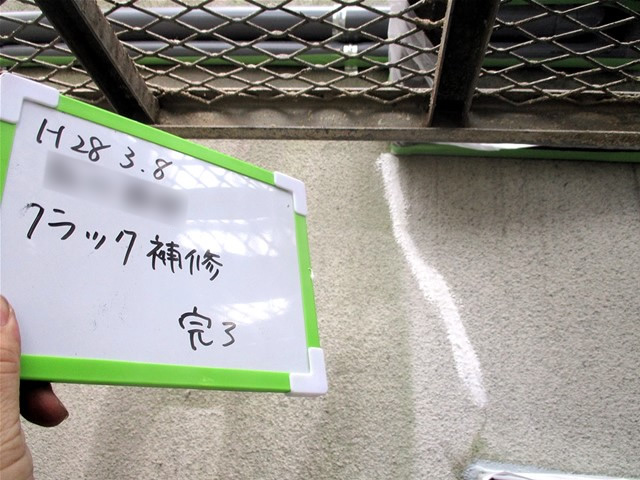 H28 3.8
クラック補修
完了